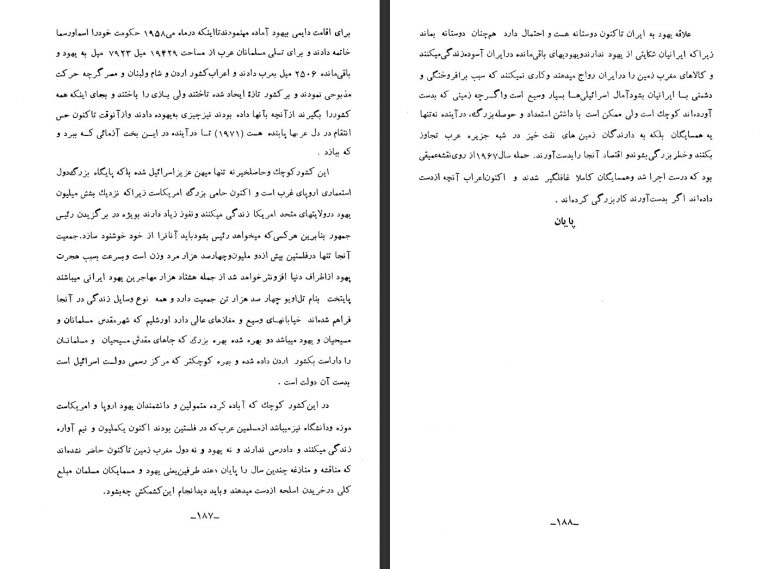 برای اقامت دایمی یهود آماده مینمودند تا اینکه درماه می ۱۹۵۸ حکومت خودرا اسماً ورسماً
خاتمه دادند و برای تسلی مسلمانان عرب از مساحت ۱۹۴۲۹ میل ۷۹۲۳ میل به یهود و
باقی مانده ۲۵۰۶ میل بعرب دادند و اعراب کشور اردن و شام ولبنان و مصر گرچه حرکت
مذبوحی نمودند و بر کشور تازهٔ ایجاد شده تاختند ولی بازی را باختند و بجای اینکه همه
کشوررا بگیرند از آنچه بآنها داده بودند نیز چیزی به یهوده دادند واز آنوقت تاکنون حس
انتقام در دل عربها پابنده هست (۱۹۷۱) تا درآینده در این بخت آزمائی که ببرد و
که ببازد .
این کشور کوچك وحاصلخیز نه تنها میهن عزیز اسرائیل شده بلکه پایگاه بزرگ دول
استعماری اروپای غرب است و اکنون حامی بزرگ امریکاست زیرا که نزدیك بشش میلیون
یهود درولایتهای متحد امریکا زندگی میکنند ونفوذ زیاد دارند بویژه در برگزیدن رئیس
جمهور بنابرین هرکسی که میخواهد رئیس بشود باید آنانرا از خود خوشنود سازد. جمعیت
آنجا تنها درفلسطین بیش از دو ملیون وچهارصد هزار مرد وزن است و بسرعت بسبب هجرت
یهود از اطراف دنیا افزونتر خواهد شد از جمله هشتاد هزار مهاجرین یهود ایرانی میباشند
پایتخت بنام تل اویو چهار صد هزار تن جمعیت دارد و همه نوع وسایل زندگی در آنجا
فراهم شده اند خیابانهای وسیع و مغازهای عالی دارد اورشلیم که شهر مقدس مسلمانان و
مسیحیان و یهود میباشد دو بهره شده بهره بزرگ که جاهای مقدس مسیحیان و مسلمانان
را داراست بکشور اردن داده شده و بهره کوچکتر که مرکز رسمی دولت اسرائیل است
بدست آن دولت است .
در این کشور کوچك که آباده کرده متمولین و دانشمندان یهود اروپا و امریکاست
موزه ودانشگاه نیز میباشد از مسلمین عرب که در فلسطین بودند اکنون یکملیون و نیم آواره
زندگی میکنند و دادرسی ندارند و نه یهود و نه دول مغرب زمین تاکنون حاضر نشده اند
که مناقشه و منازعه چندین سال را پایان دهند طرفین یعنی یهود و همسایگان مسلمان مبلغ
کلی درخریدن اسلحه ازدست میدهند وباید دید انجام این کشمکش چه بشود.
ـ۱۸۷ـ
علاقه یهود به ایران تاکنون دوستانه هست و احتمال دارد هم چنان دوستانه بماند
زیرا که ایرانیان شکایتی از یهود ندارند ویهودیهای باقی مانده درایران آسوده زندگی میکنند
و کالاهای مغرب زمین را درایران رواج میدهند وکاری نمیکنند که سبب برافروختگی و
دشمنی با ایرانیان بشود آمال اسرائیلی ها بسیار وسیع است واگرچه زمینی که بدست
آورده اند کوچك است ولی ممکن است با داشتن استعداد و حوصله بزرگ، درآینده نه تنها
به همسایگان بلکه به دارندگان زمین های نفت خیز در شبه جزیره عرب تجاوز
بکنند وخطر بزرگی بشوند و اقتصاد آنجا را بدست آورند. حمله سال ۱۹۶۷ از روی نقشه عمیقی
بود که درست اجرا شد وهمسایگان کاملا غافلگیر شدند و اکنون اعراب آنچه ازدست
داده اند اگر بدست آورند کار بزرگی کرده اند .
پایان
ـ۱۸۸ـ